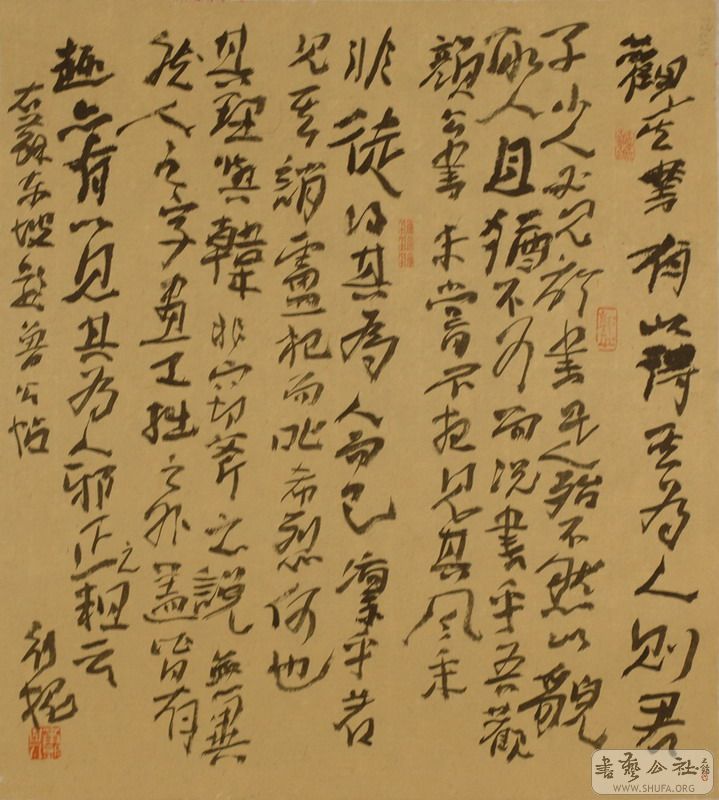 觀其書有以得其為人則君
子小人必見於書是殆不然以貌
取人且猶不可而況書乎吾觀
顏公書未嘗不想見其風采
非徒得其為人而已凜乎若
見其誚盧杞而叱希烈何也
其理與韓非窃斧之說無異
然人之字畫工拙之外蓋皆有
趣亦有以見其為人邪正之粗云
右蘇東坡題魯公帖
書藝公社
WWW.SHUFA.ORG